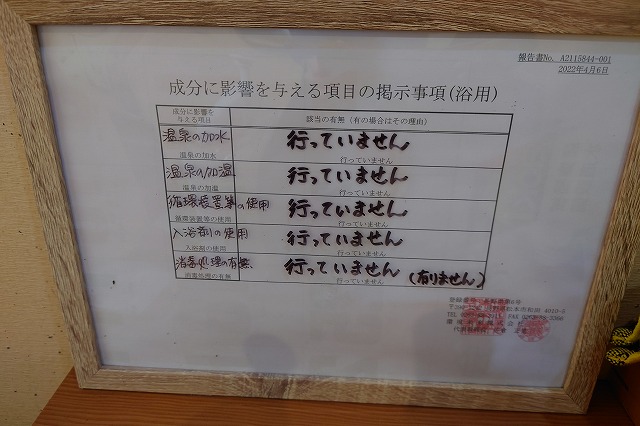 報告書No. A2115844-001
2022年4月6日
成分に影響を与える項目の掲示事項(浴用)
成分に影響を
与える項目
該当の有無（有の場合はその理由）
温泉の加水
行っていません
温泉の加水
行っていません
温泉の加温
行っていません
温泉の加温
行っていません
循環装置等の使用
行っていません
循環装置等の使用
行っていません
入浴剤の使用
行っていません
入浴剤の使用
行っていません
消毒処理の有無
行っていません (有りません)
消毒処理の有無
行っていません
登録番号
第6号
松本市和田 4010-5
TEL
FAX
株式会社
代表取締役